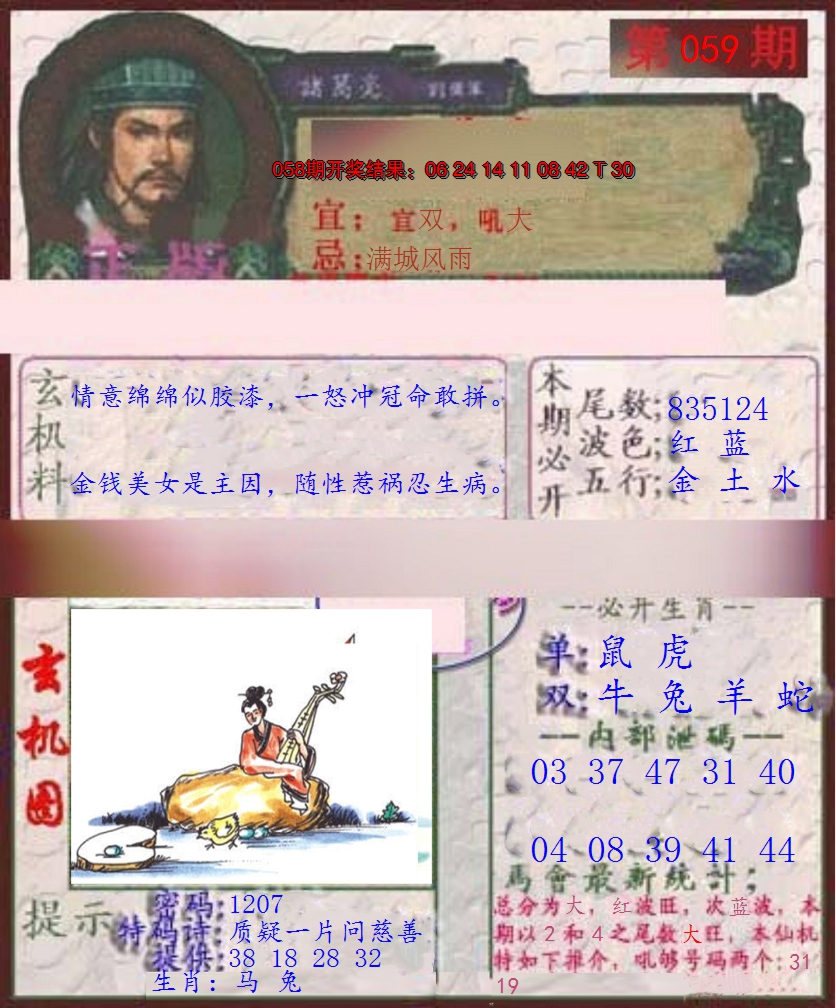 第 059 期
諸葛亮
058期开奖结果：06 24 14 11 08 42 T 30
宜：宜双，吼大
忌：满城风雨
正版
玄机料
情意绵绵似胶漆，一怒冲冠命敢拼。
金钱美女是主因，随性惹祸忍生病。
本期必开
尾数；835124
波色；红 蓝
五行；金 土 水
玄机图
--必开生肖--
单：鼠 虎
双：牛 兔 羊 蛇
—内部泄碼—
03 37 47 31 40
04 08 39 41 44
馬會最新统计；
总分为大，红波旺，次蓝波，本
期以２和４之尾数大旺，本仙机
特如下推介，吼够号码两个：31
19
提示
密码：1207
特码诗：质疑一片问慈善
提供：38 18 28 32
生肖：马 兔